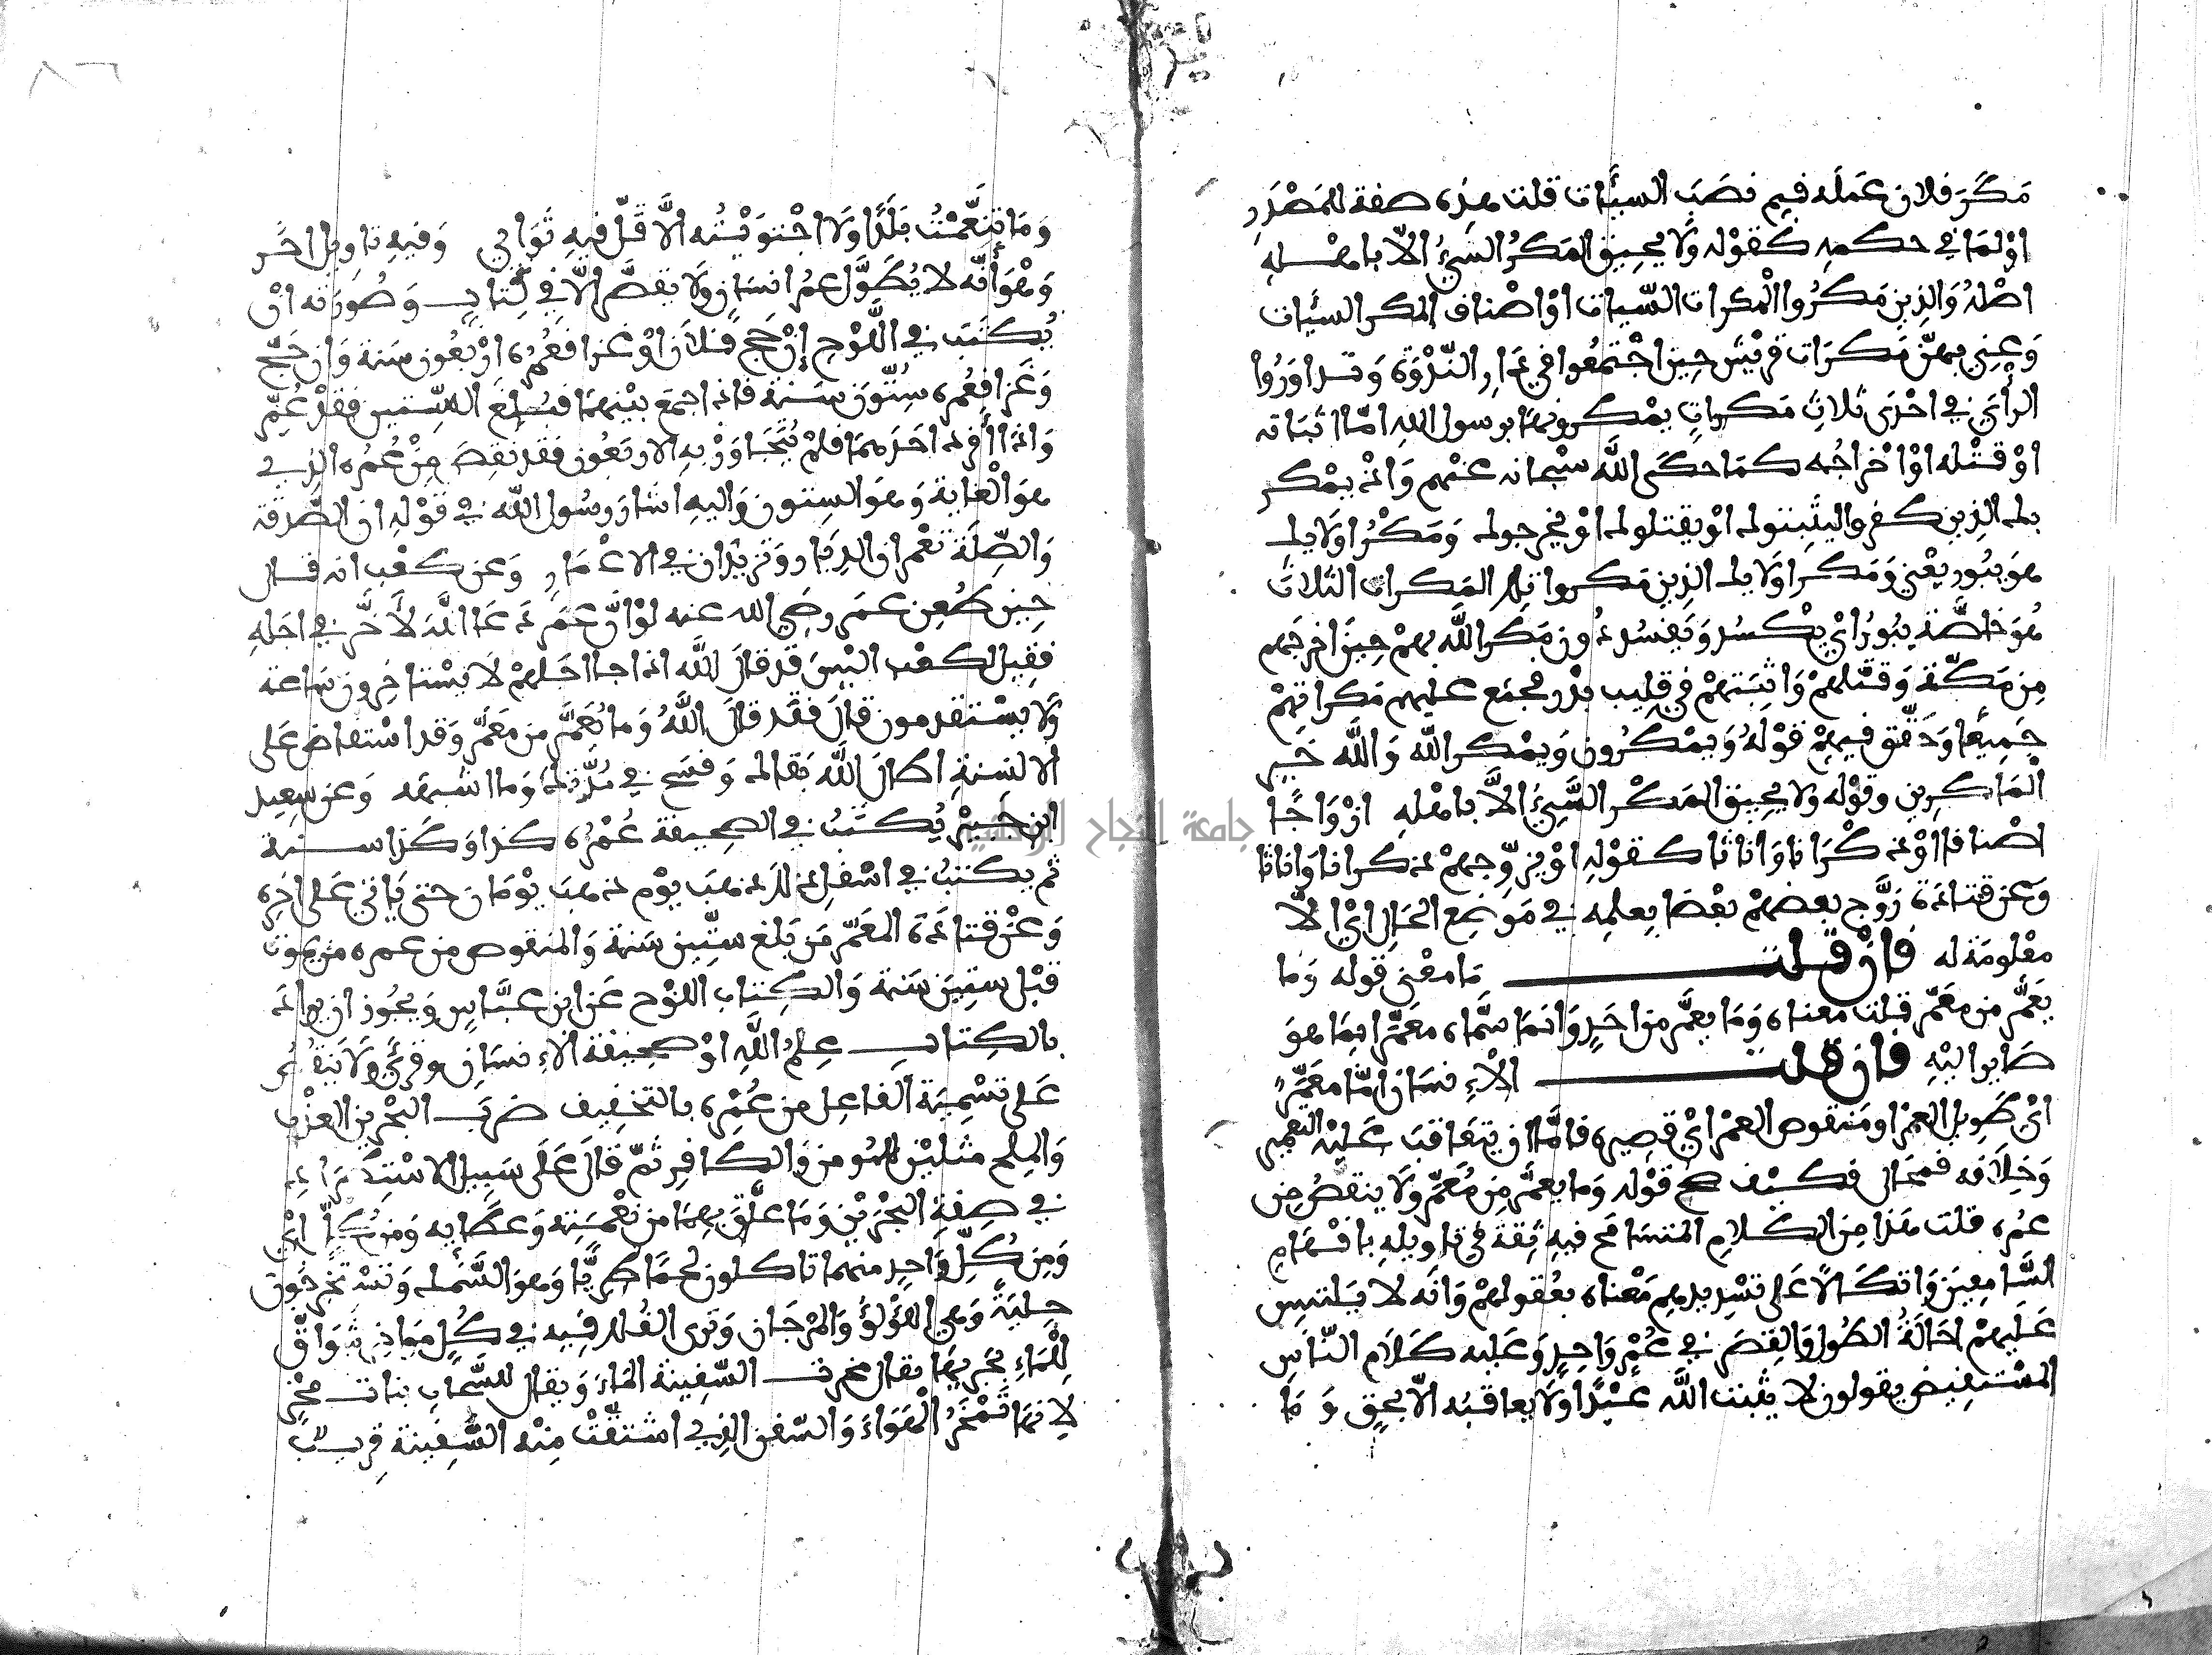 مَكَرَ فلان عَمَلَه فبم نصَبَ السيّأت قلت هذه صفة للمَصْدَرِ
اوْ لمَا في حكمه كقوْله وَلَا يحيق المَكرُ السَّيئُ الّا باهْله
اصْله وَالذين مَكرُوا المكرات السّيات اوْ اصْناف المكر السيّات
وَعني بهنّ مَكرَات قريْش حينَ اجْتمَعُوا في دَار النّدْوَة وَتداوَرُوا
الرأيَ في احْدَى ثلاث مَكراتٍ يمْكرونهَا برسول الله امّا اثبَاته
اوْ قتْله اوْ اخْراجُه كمَا حكَى اللَّه سبْحانه عنهم وَاذْ يمْكر
بك الذين كفروا ليثْبتوك اوْ يقتلوك اوْ يخرجوك وَمَكْرُ اولايك
هوَ يبُور يعْني وَمَكر اولايك الذين مَكروا تلك المَكرات الثلاث
هُوَ خَاصَّة يبُورُ ايْ يكْسُد وَيَفسُد دُون مَكر اللَّه بهمْ حينَ اخرجَهم
مِن مَكّة وَقتْلهمْ وَاثبَتهمْ في قلِيب بدْر فجمَع عليهم مَكراتهمْ
جَميعًا وَحَقّق فيهمْ قوْلهُ وَيمْكرُون وَيمْكر اللّه وَاللَّه خَير
الْمَاكرين وقوْله ولا يحيق المَكْر السَّيئُ الاَّ باهْله ازْوَاجًا
اصْنافا اوْ ذكْرَانا وَاناثا كقوْله اوْ يزوّجهمْ ذكرانا وَاناثا
وَعَن قتادَة زوَّج بعضهمْ بعْضا بعلمه في مَوضع الحَال ايْ الاَّ
معْلومَة له فَانْ قلت مَا معْنى قوله وَمَا
يعَمَّر من معَمّر قلت معناه وَمَا يعمَّر من احَدٍ وَانمَا سمَّاه معَمّرا بمَا هوَ
صَاير اليْه فان قلت الْاِنسَان امَّا معَمَّر
ايْ طَويل العمْر او مَنقوص العمْر ايْ قصِيره فامَّا ان يتعَاقبَ عَليْه التعمير
وَخلَافه فمحَال فكيْف صح قوْله وَمَا يعمَّر مِن مُعَمَّر ولَا ينقصُ مِن
عمُره قلت هَذا مِن الكلام المتسَامَح فيه ثقَة في تاويله بافْهَام
السَّامعِينَ وَاتكَالًا عَلى تسْديدهم مَعْناه بعُقولهمْ وَانَّه لا يَلتبس
عَليهمْ احَالَة الطُول وَالقصَر في عُمْرٍ وَاحِدٍ وَعَليه كَلَام النّاس
المسْتفيض يقولون لا يثيبُ اللَّه عَبْدًا ولا يعاقبُه الّا بحقٍ وَمَا
وَمَا تنَعَّمْتُ بَلَدًا وَلَا اجْتوَيْتُه الَّا قَلّ فيه ثوَايي وَفيه تاويل اخَر
وَهْوَ أنَّه لا يُطَوَّل عمُر انسَان وَلَا ينقصَّ الّا في كتاب وَصُورَته انْ
يُكتَبَ في اللَّوْح إنْ حَج فلانٌ اوْ غزا فعُمره ارْبعُون سَنة وَان حَجّ
وَغَزا فعُمره سُتّونَ سَنة فاذا جمَع بيْنهمَا فبَلغَ الستين فقدْ عُمّر
وَاذا أفرد احَدَهمَا فلمْ يُتجَاوَزْ به الاربَعُون فقد نقِصَ مِنْ عُمُره الذي
هوَ الْغاية وَهوَ الستون وَاليه اشارَ رسُول اللَّه في قوْله ان الصَّدقة
وَالصّلَة تعْمران الديَار وَتزيدَان في الاعْمَار وَعَن كعْب انه قال
حِينَ طُعِن عمَر رضِي الله عنه لوْ اَنَّ عمَر دَعَا اللَّه لاَخَّر في اجَله
فقيل لكعْب الَيْسَ قد قالَ اللَّه اذا جا اجَلهمْ لَا يسْتاخِرون سَاعة
وَلَا يسْتقدمون قالَ فقد قالَ اللَّهُ وَما يُعَمَّر من مَعَمَّر وَقد اسْتفاض عَلى
الالسنة اطَالَ اللَّه بَقاك وَفسَح في مُدَّتك وَما اشبَهه وَعن سعِيد
ابن جبيْر يُكتَبُ في الصحيفة عُمْره كذا وَكَذا سنة
ثم يكتبُ في اسْفل ذلك ذهَبَ يوْم ذهبَ يوْمَان حتى يَاتي عَلى اخِره
وَعنْ قتادَة المعَمَّر مَن بَلغَ ستّين سَنة وَالمنقوص من عمره من يموت
قبْل ستينَ سَنة وَالكتاب اللوْح عَن ابن عبَّاس وَيجُوز ان يرَاد
بالكتاب علمُ اللَّه اوْ صحيفة الاِنسَان وقرئَ وَلَا يَنقُص
عَلى تسْميَة الفاعل من عُمْره بالتخفيف ضربَ البحْرين العذْب
وَالملح مثليْن للمُومن وَالكافر ثمّ قالَ عَلَى سَبيل الاسْتطرَاد
في صفة البَحْريْن وَمَا علّق بهما من نعْمَته وَعطَايه وَمن كُل ايْ
وَمِن كُلّ وَاحد منهمَا تاكلون لحمًا طريًّا وَهوَ السَّمَك وَتسْتخْرجُون
حليَةً وَهي اللؤْلؤُ وَالمرْجَان وَترى الفُلك فيه في كُل مَوَاخر شوَاقّ
للْمَاءِ بجَريهَا يقال مَخرت السّفينة المَاءَ وَيقال للسَّحاب بنات مخْر
لانهَا تَمْخُرُ الْهَوَاءَ وَالسّفن الذي اشتقّتْ منْه السَّفينة قريبٌ